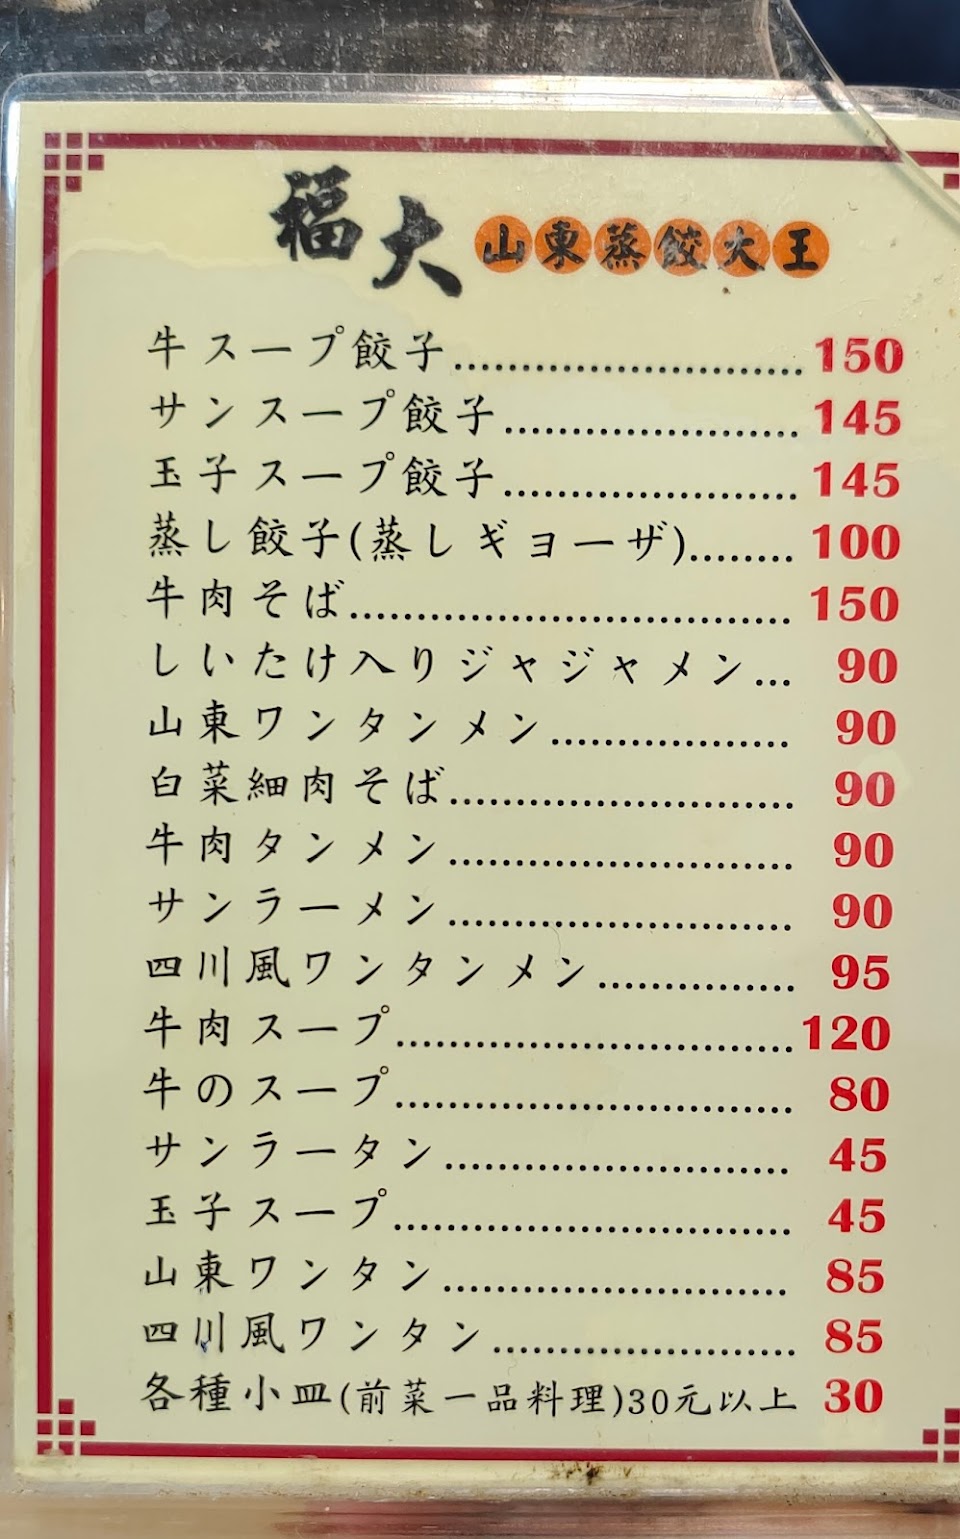 福大 山東蒸餃大王
牛スープ餃子.......................... 150
サンスープ餃子...................... 145
玉子スープ餃子...................... 145
蒸し餃子(蒸しギョーザ)........ 100
牛肉そば................................. 150
しいたけ入りジャジャメン... 90
山東ワンタンメン.................. 90
白菜細肉そば.......................... 90
牛肉タンメン.......................... 90
サンラーメン.......................... 90
四川風ワンタンメン............... 95
牛肉スープ.............................. 120
牛のスープ.............................. 80
サンラータン.......................... 45
玉子スープ.............................. 45
山東ワンタン.......................... 85
四川風ワンタン....................... 85
各種小皿(前菜一品料理)30元以上 30